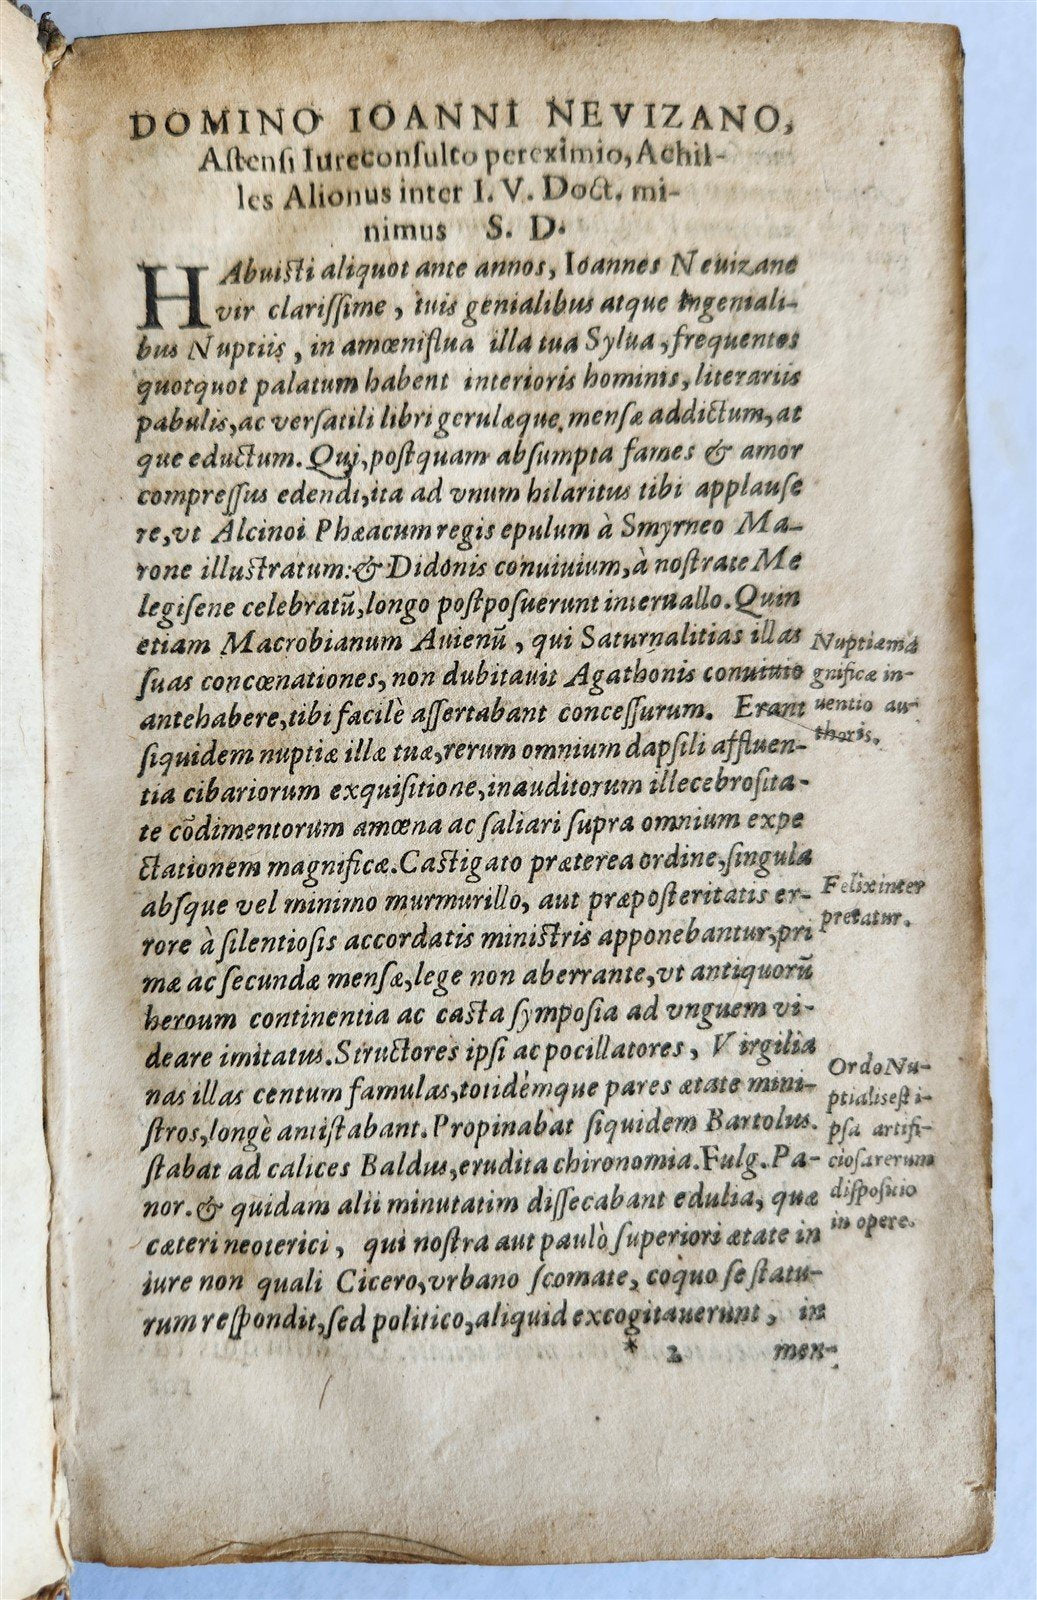 DOMINO IOANNI NEVIZANO,
Astensi Iureconsulto pereximio, Achil-
les Alionus inter I. V. Doct. mi-
nimus S. D.
HAbuisti aliquot ante annos, Ioannes Nevizane
vir clarissime, tuis genialibus atque ingeniali-
bus Nuptiis, in amœniflua illa tua Sylua, frequentes
quotquot palatum habent interioris hominis, literariis
pabulis, ac versatili libri gerulæque mensæ addictum, at
que eductum. Qui, postquam absumpta fames & amor
compressus edendi, ita ad vnum hilaritus tibi applause
re, vt Alcinoi Phæacum regis epulum à Smyrneo Ma-
rone illustratum: & Didonis conuiuium, à nostrate Me
legisene celebratū, longo postposuerunt interuallo. Quin
etiam Macrobianum Auienū, qui Saturnalitias illas
suas concœnationes, non dubitauit Agathonis conuiuio
antehabere, tibi facilè assertabant concessurum. Erant
siquidem nuptiæ illæ tuæ, rerum omnium dapsili affluen-
tia cibariorum exquisitione, inauditorum illecebrosita-
te cōdimentorum amœna ac saliari supra omnium expe
ctationem magnificæ. Castigato præterea ordine, singula
absque vel minimo murmurillo, aut præposteritatis er-
rore à silentiosis accordatis ministris apponebantur, pri
mæ ac secundæ mensæ, lege non aberrante, vt antiquorū
heroum continentia ac casta symposia ad vnguem vi-
deare imitatus. Structores ipsi ac pocillatores, Virgilia
nas illas centum famulas, totidèmque pares ætate mini-
stros, longè antistabant. Propinabat siquidem Bartolus.
stabat ad calices Baldus, erudita chironomia. Fulg. Pa-
nor. & quidam alii minutatim dissecabant edulia, quæ
cæteri neoterici, qui nostra aut paulò superiori ætate in
iure non quali Cicero, vrbano scomate, coquo se statu-
rum respondit, sed politico, aliquid excogitauerunt, in
* 2 men-
Nuptiæ ma
gnificæ in-
uentio au-
thoris.
Felix inter
pretatur.
Ordo Nu-
ptialis est i-
psa artifi-
ciosa rerum
dispositio
in opere.